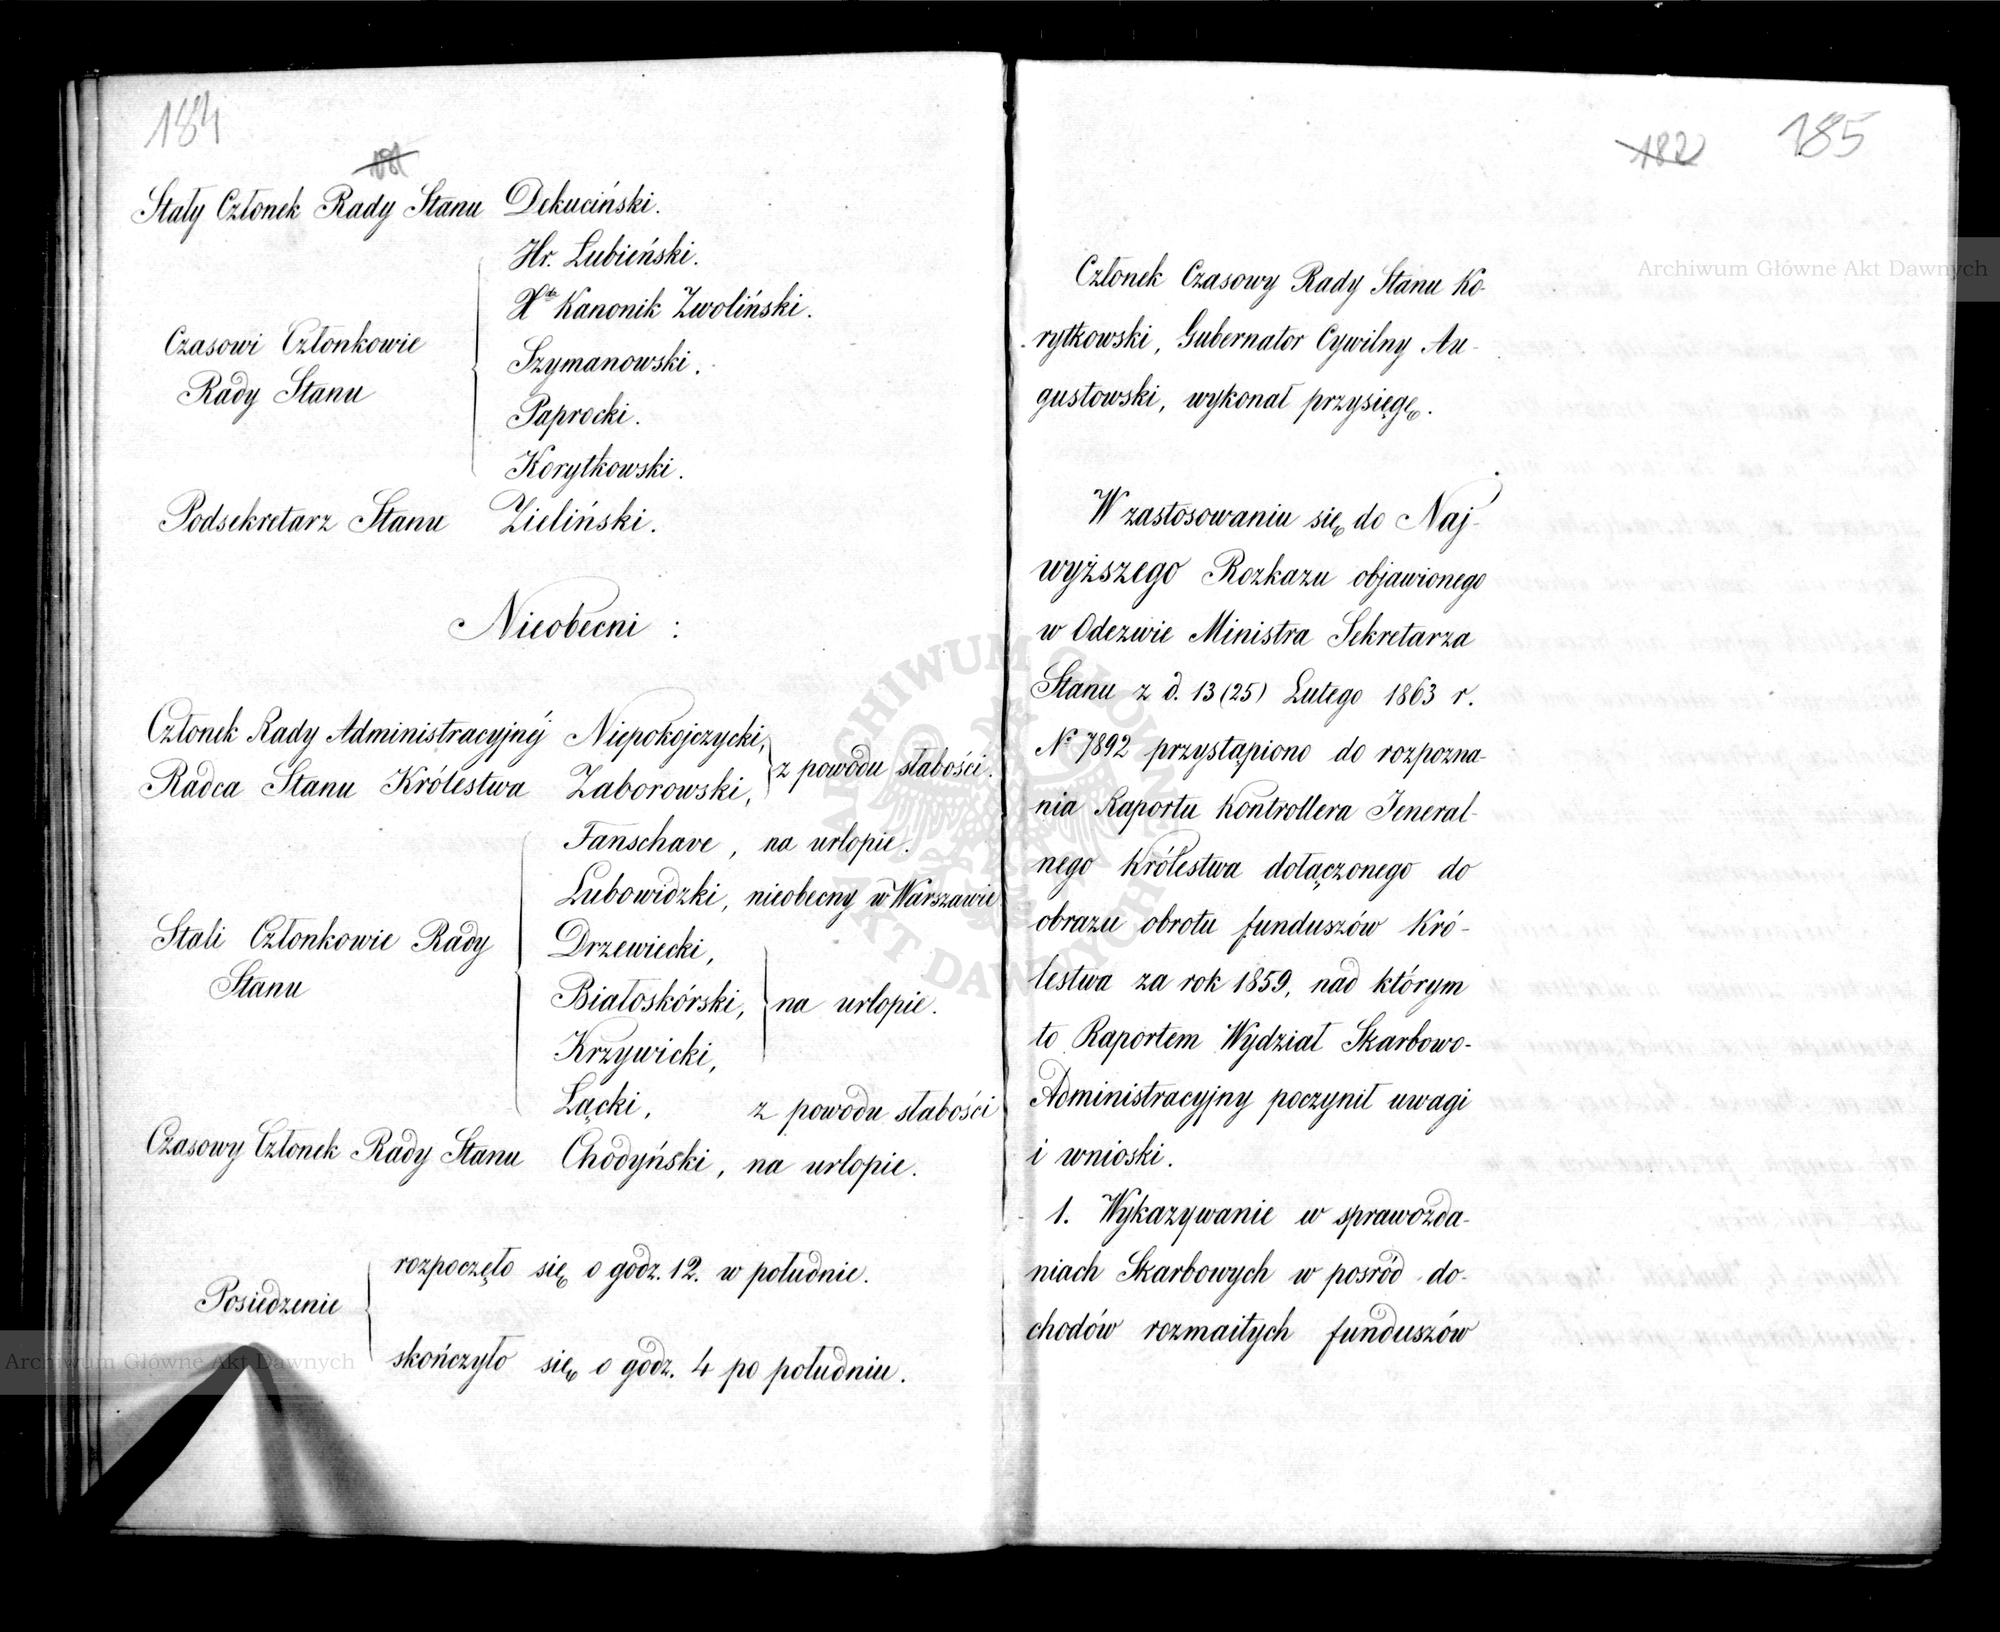 184
181
Stały Członek Rady Stanu Dekuciński.
Hr. Lubieński.
Xdz Kanonik Zwoliński.
Czasowi Członkowie
Rady Stanu
Szymanowski.
Paprocki.
Korytkowski.
Podsekretarz Stanu Zieliński.
Nieobecni :
Członek Rady Administracyjnéj Niepokojczycki,
Radca Stanu Królestwa Zaborowski,
z powodu słabości.
Fanschave, na urlopie.
Lubowidzki, nieobecny w Warszawie
Stali Członkowie Rady
Stanu
Drzewiecki,
Białoskórski,
Krzywicki,
na urlopie.
Łącki, z powodu słabości
Czasowy Członek Rady Stanu Chodyński, na urlopie.
Posiedzenie
rozpoczęło się o godz. 12. w południe.
skończyło się o godz. 4 po południu.
182
185
Członek Czasowy Rady Stanu Ko-
rytkowski, Gubernator Cywilny Au-
gustowski, wykonał przysięgę.
W zastosowaniu się do Naj-
wyższego Rozkazu objawionego
w Odezwie Ministra Sekretarza
Stanu z d. 13 (25) Lutego 1863 r.
No 7892 przystąpiono do rozpozna-
nia Raportu Kontrollera Jeneral-
nego Królestwa dołączonego do
obrazu obrotu funduszów Kró-
lestwa za rok 1859, nad którym
to Raportem Wydział Skarbowo-
Administracyjny poczynił uwagi
i wnioski.
1. Wykazywanie w sprawozda-
niach Skarbowych w pośród do-
chodów rozmaitych funduszów
Archiwum Główne Akt Dawnych
Archiwum Główne Akt Dawnych
ARCHIWUM GŁÓWNE AKT DAWNYCH